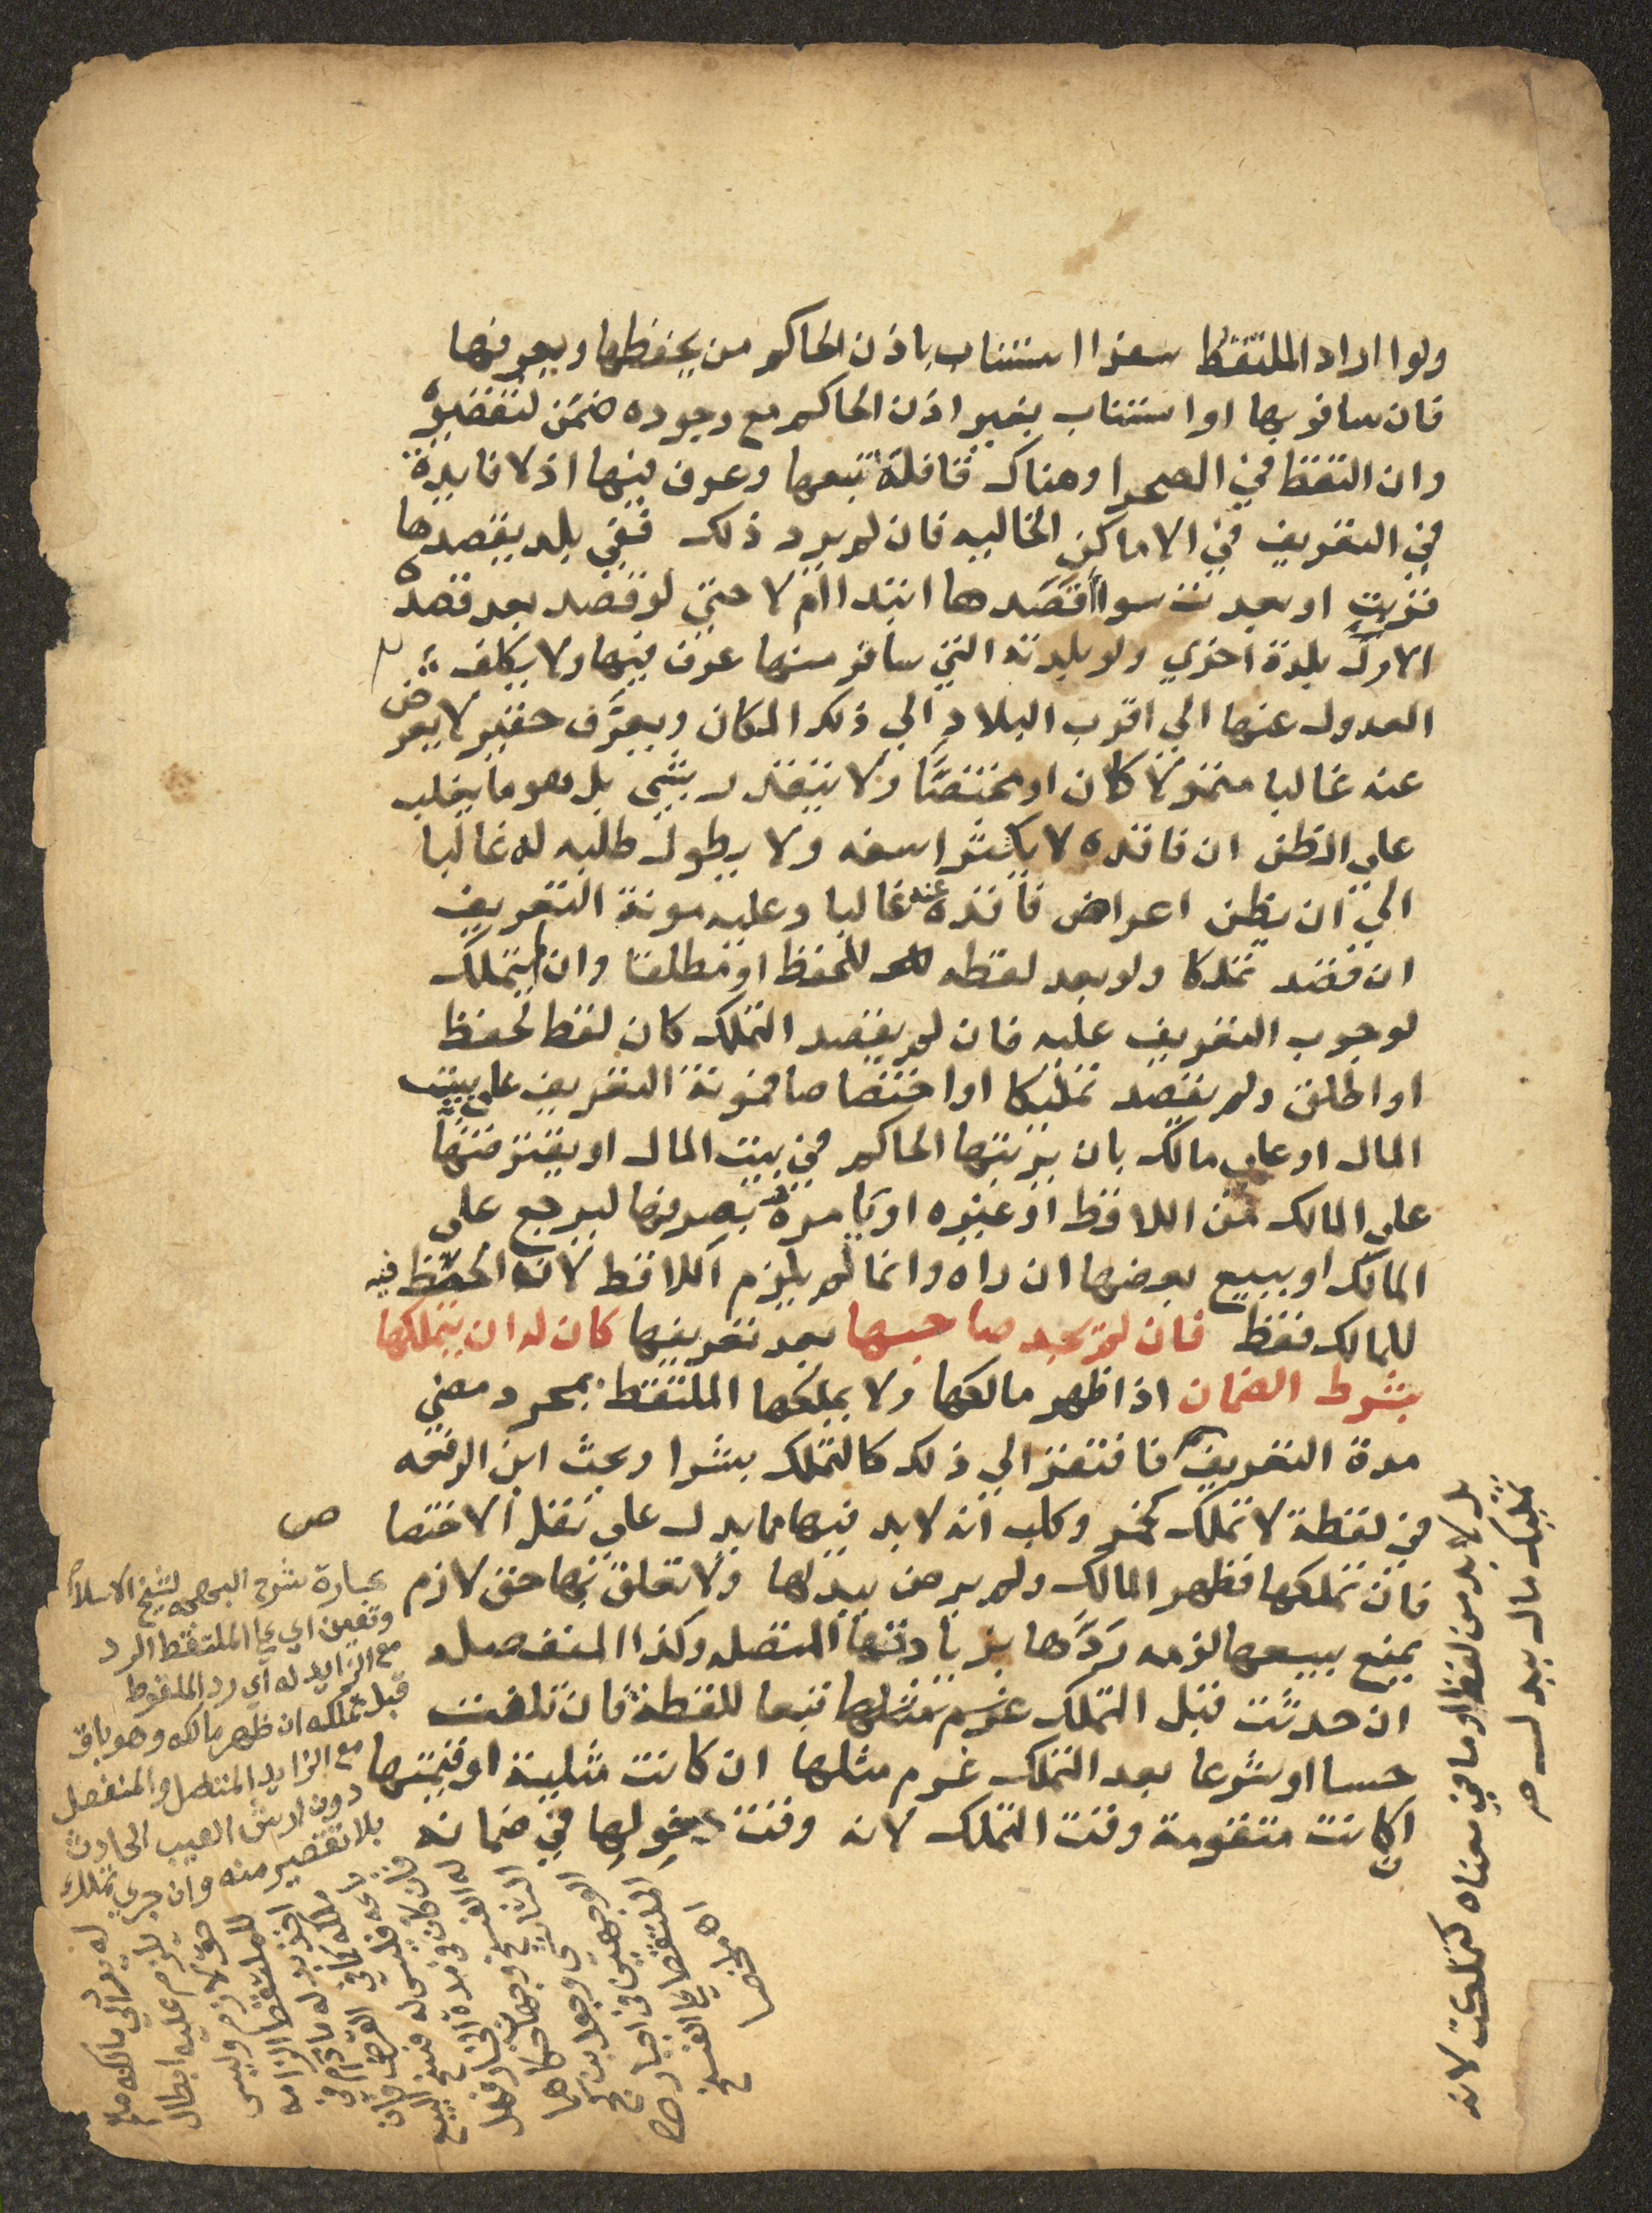 ولوا اراد الملتقط سفرا استناب باذن الحاكم من يحفظها ويعرفها
فان سافر بها او استناب بغير اذن الحاكم مع وجوده ضمن لتقصيره
وان التقط في الصحرا وهناك قافلة تبعها وعرف فيها اذ لا فايدة
في التعريف في الاماكن الخاليه فان لم يرد ذلك ففي بلد يقصدها
قربت او بعدت سوا أقصدها ابتدا ام لا حتى لو قصد بعد قصده
الاول بلدة اخري ولو بلدته التي سافر منها عرف فيها ولا يكلف
العدول عنها الي اقرب البلاد الي ذلك المكان ويعرَّف حقير لا يعرض
عنه غالبا متمولا كان او مختصًا ولا يتقدر بشي بل هو ما يغلب
علي الظن ان فاقده لا يكثر اسفه ولا يطول طلبه له غالبا
الي ان يظن اعراض فاقده عنه غالبا وعليه مونة التعريف
ان قصد تملكا ولو بعد لقطه للحفظ او مطلقا وان لم يتملك
لوجوب التعريف عليه فان لم يقصد التملك كان لقط لحفظ
او اطلق ولم يقصد تملكا او اختصاصا فمونة التعريف علي بيت
المال او علي مالك بان يرتبها الحاكم في بيت المال او يقترضها
علي المالك من اللاقط او غيره او يامره بصرفها ليرجع علي
المالك او يبيع بعضها ان راه وانما لم يلزم اللاقط لان الحظ فيه
للمالك فقط فان لم يجد صاحبها بعد تعريفها كان له ان يتملكها
بشرط الضمان اذا ظهر مالكها ولا يملكها الملتقط بمجرد مضي
مدة التعريف فافتقر الي ذلك كالتملك بشرا وبحث ابن الرفعه
في لقطة لا تملك كخمر وكلب انه لابد فيها مما يدل علي نقل الاختصا ص
فان تملكها فظهر المالك ولم يرض ببدلها ولا تعلق بها حق لازم
يمنع بيعها لزمه رَدَّها بزيادتها المتصله وكذا المنفصله
ان حدثت قبل التملك تبعا للقطة فان تلفت
حسا او شرعا بعد التملك غرم مثلها ان كانت مثلية او قيمتها
ان كانت متقومة وقت التملك لانه وقت دخولها في ضمانه
بل لابد من لفظ او ما في معناه كتملكت لانه
تمليك مال ببدل
عبارة شرح البهجه لشيخ الاسلام
وتعين اي علي الملتقط الرد
مع الزايد له اي رد الملقوط
قبل تملكه ان ظهر مالكه وهو باق
مع الزايد المتصل والمنفصل
دون ارش العيب الحادث
بلا تقصير منه وان جري تملك